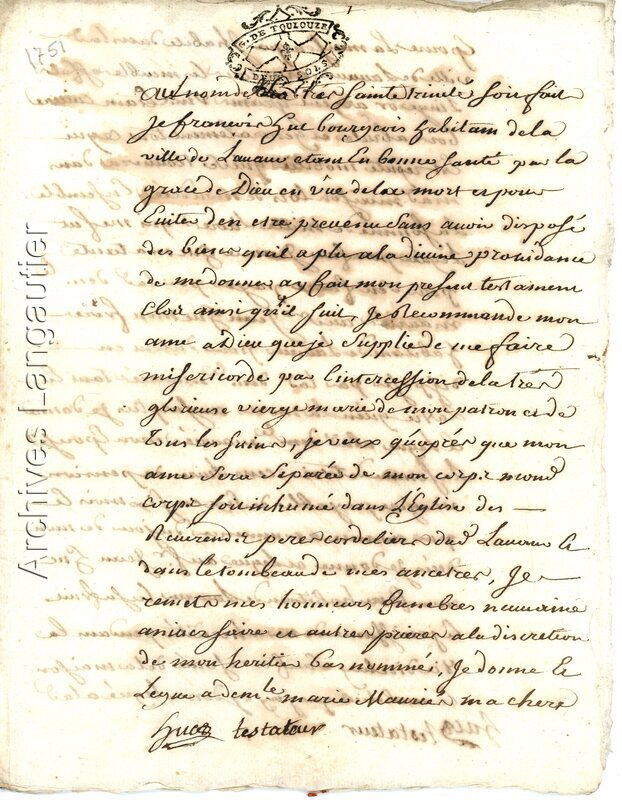 1751
G. DE TOULOUZE
DEUX SOLS
Au nom de la tres sainte trinité soit fait
Je francois huc bourgeois habitant de la
ville de Lavaur etant En bonne santé par la
grace de Dieu en vûe de la mort et pour
Eviter den etre prevenu sans avoir disposé
des biens quil a plu a la divine providance
de me donner ay fait mon present testament
clos ainsi qu'il suit, Je Recommande mon
ame a Dieu que je supplie de me faire
misericorde par l'intercession de la trés
glorieuse vierge marie de mon patron et de
tous les saints, je veux qu'aprés que mon
ame sera separée de mon corps mond
corps soit inhumé dans L'Eglise des
Reverends peres cordeliers dud Lavaur Et
dans le tombeau de mes ancetres, Je
remets mes honneurs funebres neuvaine
aniversaire et autres prieres a la discretion
de mon heritier bas nommé, Je donne Et
Legue a dem.le marie Mauriés ma chere
huc testateur
Archives Langautier